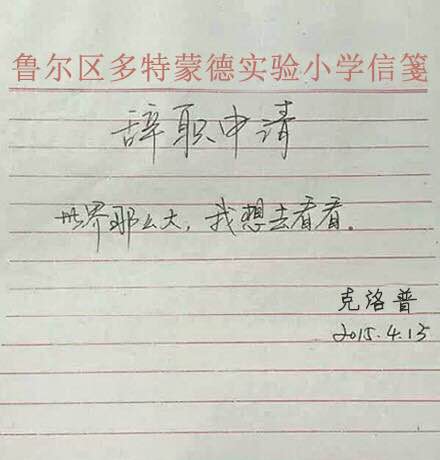 鲁尔区多特蒙德实验小学信笺
辞职申请
世界那么大，我想去看看.
克洛普
2015.4.13